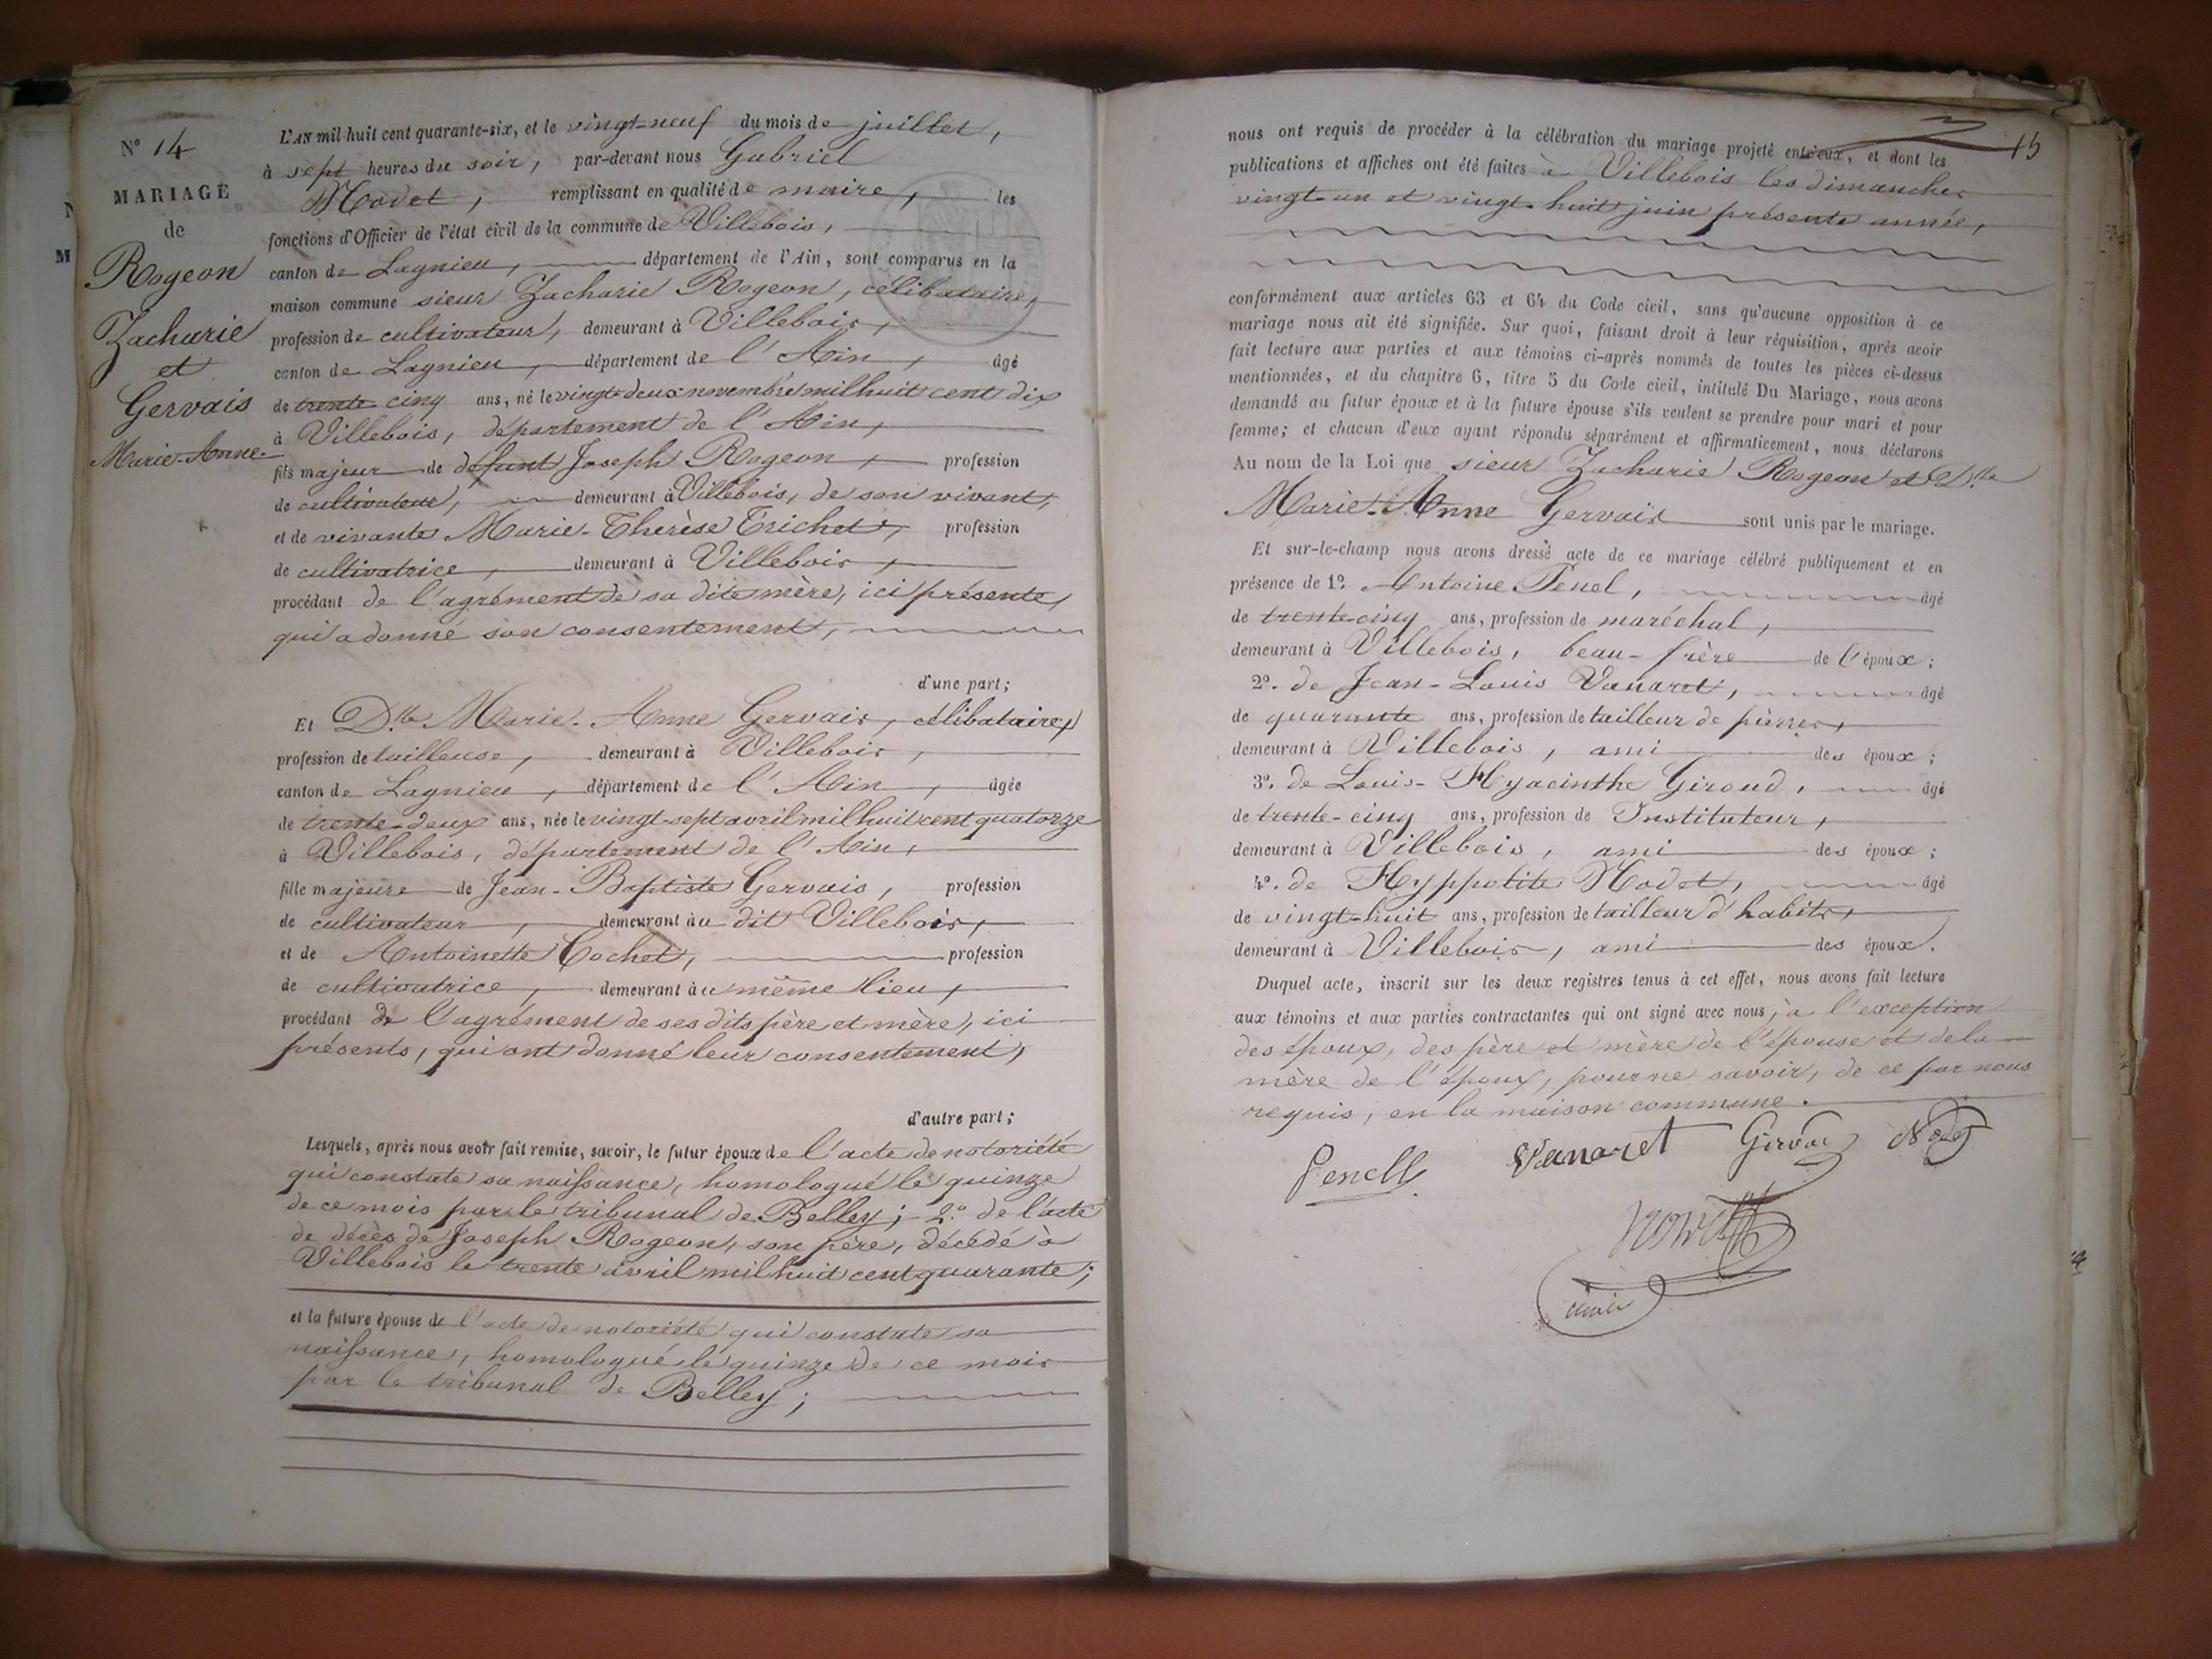 N° 14
MARIAGE
de
Rogeon
Zacharie
et
Gervais
Marie-Anne
L'AN mil huit cent quarante-six, et le vingt-neuf du mois de juillet,
à sept heures du soir, par-devant nous Gabriel
Nodet, remplissant en qualité de maire, les
fonctions d'Officier de l'état civil de la commune de Villebois,
canton de Lagnieu, département de l'Ain, sont comparus en la
maison commune sieur Zacharie Rogeon, célibataire,
profession de cultivateur, demeurant à Villebois,
canton de Lagnieu, département de l'Ain, âgé
de trente-cinq ans, né le vingt-deux novembre mil huit cent dix
à Villebois, département de l'Ain,
fils majeur de défunt Joseph Rogeon, profession
de cultivateur, demeurant à Villebois, de son vivant,
et de vivante Marie-Thérèse Trichet, profession
de cultivatrice, demeurant à Villebois,
procédant de l'agrément de sa dite mère, ici présente,
qui a donné son consentement,
d'une part;
Et D.lle Marie-Anne Gervais, célibataire,
profession de tailleuse, demeurant à Villebois,
canton de Lagnieu, département de l'Ain, âgée
de trente-deux ans, née le vingt-sept avril mil huit cent quatorze
à Villebois, département de l'Ain,
fille majeure de Jean-Baptiste Gervais, profession
de cultivateur, demeurant au dit Villebois,
et de Antoinette Cochet, profession
de cultivatrice, demeurant au même lieu,
procédant de l'agrément de ses dits père et mère, ici
présents, qui ont donné leur consentement,
d'autre part;
Lesquels, après nous avoir fait remise, savoir, le futur époux de l'acte de notoriété
qui constate sa naissance, homologué le quinze
de ce mois par le tribunal de Belley; 2.° de l'acte
de décès de Joseph Rogeon, son père, décédé à
Villebois le trente avril mil huit cent quarante;
et la future épouse de l'acte de notoriété qui constate sa
naissance, homologué le quinze de ce mois
par le tribunal de Belley;
15
nous ont requis de procéder à la célébration du mariage projeté entr'eux, et dont les
publications et affiches ont été faites à Villebois les dimanches
vingt-un et vingt-huit juin présente année,
conformément aux articles 63 et 64 du Code civil, sans qu'aucune opposition à ce
mariage nous ait été signifiée. Sur quoi, faisant droit à leur réquisition, après avoir
fait lecture aux parties et aux témoins ci-après nommés de toutes les pièces ci-dessus
mentionnées, et du chapitre 6, titre 5 du Code civil, intitulé Du Mariage, nous avons
demandé au futur époux et à la future épouse s'ils veulent se prendre pour mari et pour
femme; et chacun d'eux ayant répondu séparément et affirmativement, nous déclarons
Au nom de la Loi que sieur Zacharie Rogeon et D.lle
Marie-Anne Gervais sont unis par le mariage.
Et sur-le-champ nous avons dressé acte de ce mariage célébré publiquement et en
présence de 1°. Antoine Penel, âgé
de trente-cinq ans, profession de maréchal,
demeurant à Villebois, beau-frère de l'époux;
2°. de Jean-Louis Vanaret, âgé
de quarante ans, profession de tailleur de pierres,
demeurant à Villebois, ami des époux;
3°. de Louis-Hyacinthe Giroud, âgé
de trente-cinq ans, profession de Instituteur,
demeurant à Villebois, ami des époux;
4°. de Hyppolite Nodet, âgé
de vingt-huit ans, profession de tailleur d'habits,
demeurant à Villebois, ami des époux.
Duquel acte, inscrit sur les deux registres tenus à cet effet, nous avons fait lecture
aux témoins et aux parties contractantes qui ont signé avec nous, à l'exception
des époux, des père et mère de l'épouse et de la
mère de l'époux, pour ne savoir, de ce par nous
requis, en la maison commune.
Penell Vanaret Giroud Nodet